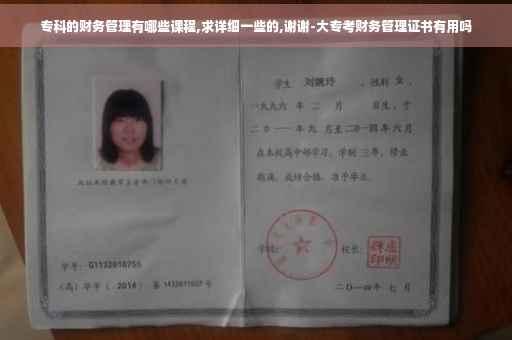 专科的财务管理有哪些课程,求详细一些的,谢谢-大专考财务管理证书有用吗
学生 刘婉玲 ,性别 女 ,
一九九六 年 二 月 日生,于
二〇一一年九 月至二〇一四年 六 月
在本校高中部学习,学制 三年,修业
期满,成绩合格,准予毕业。
学号: G1132010755
(高)毕字( 2014 )第 1432011027 号
学校:
校长:
二〇一四年 七 月